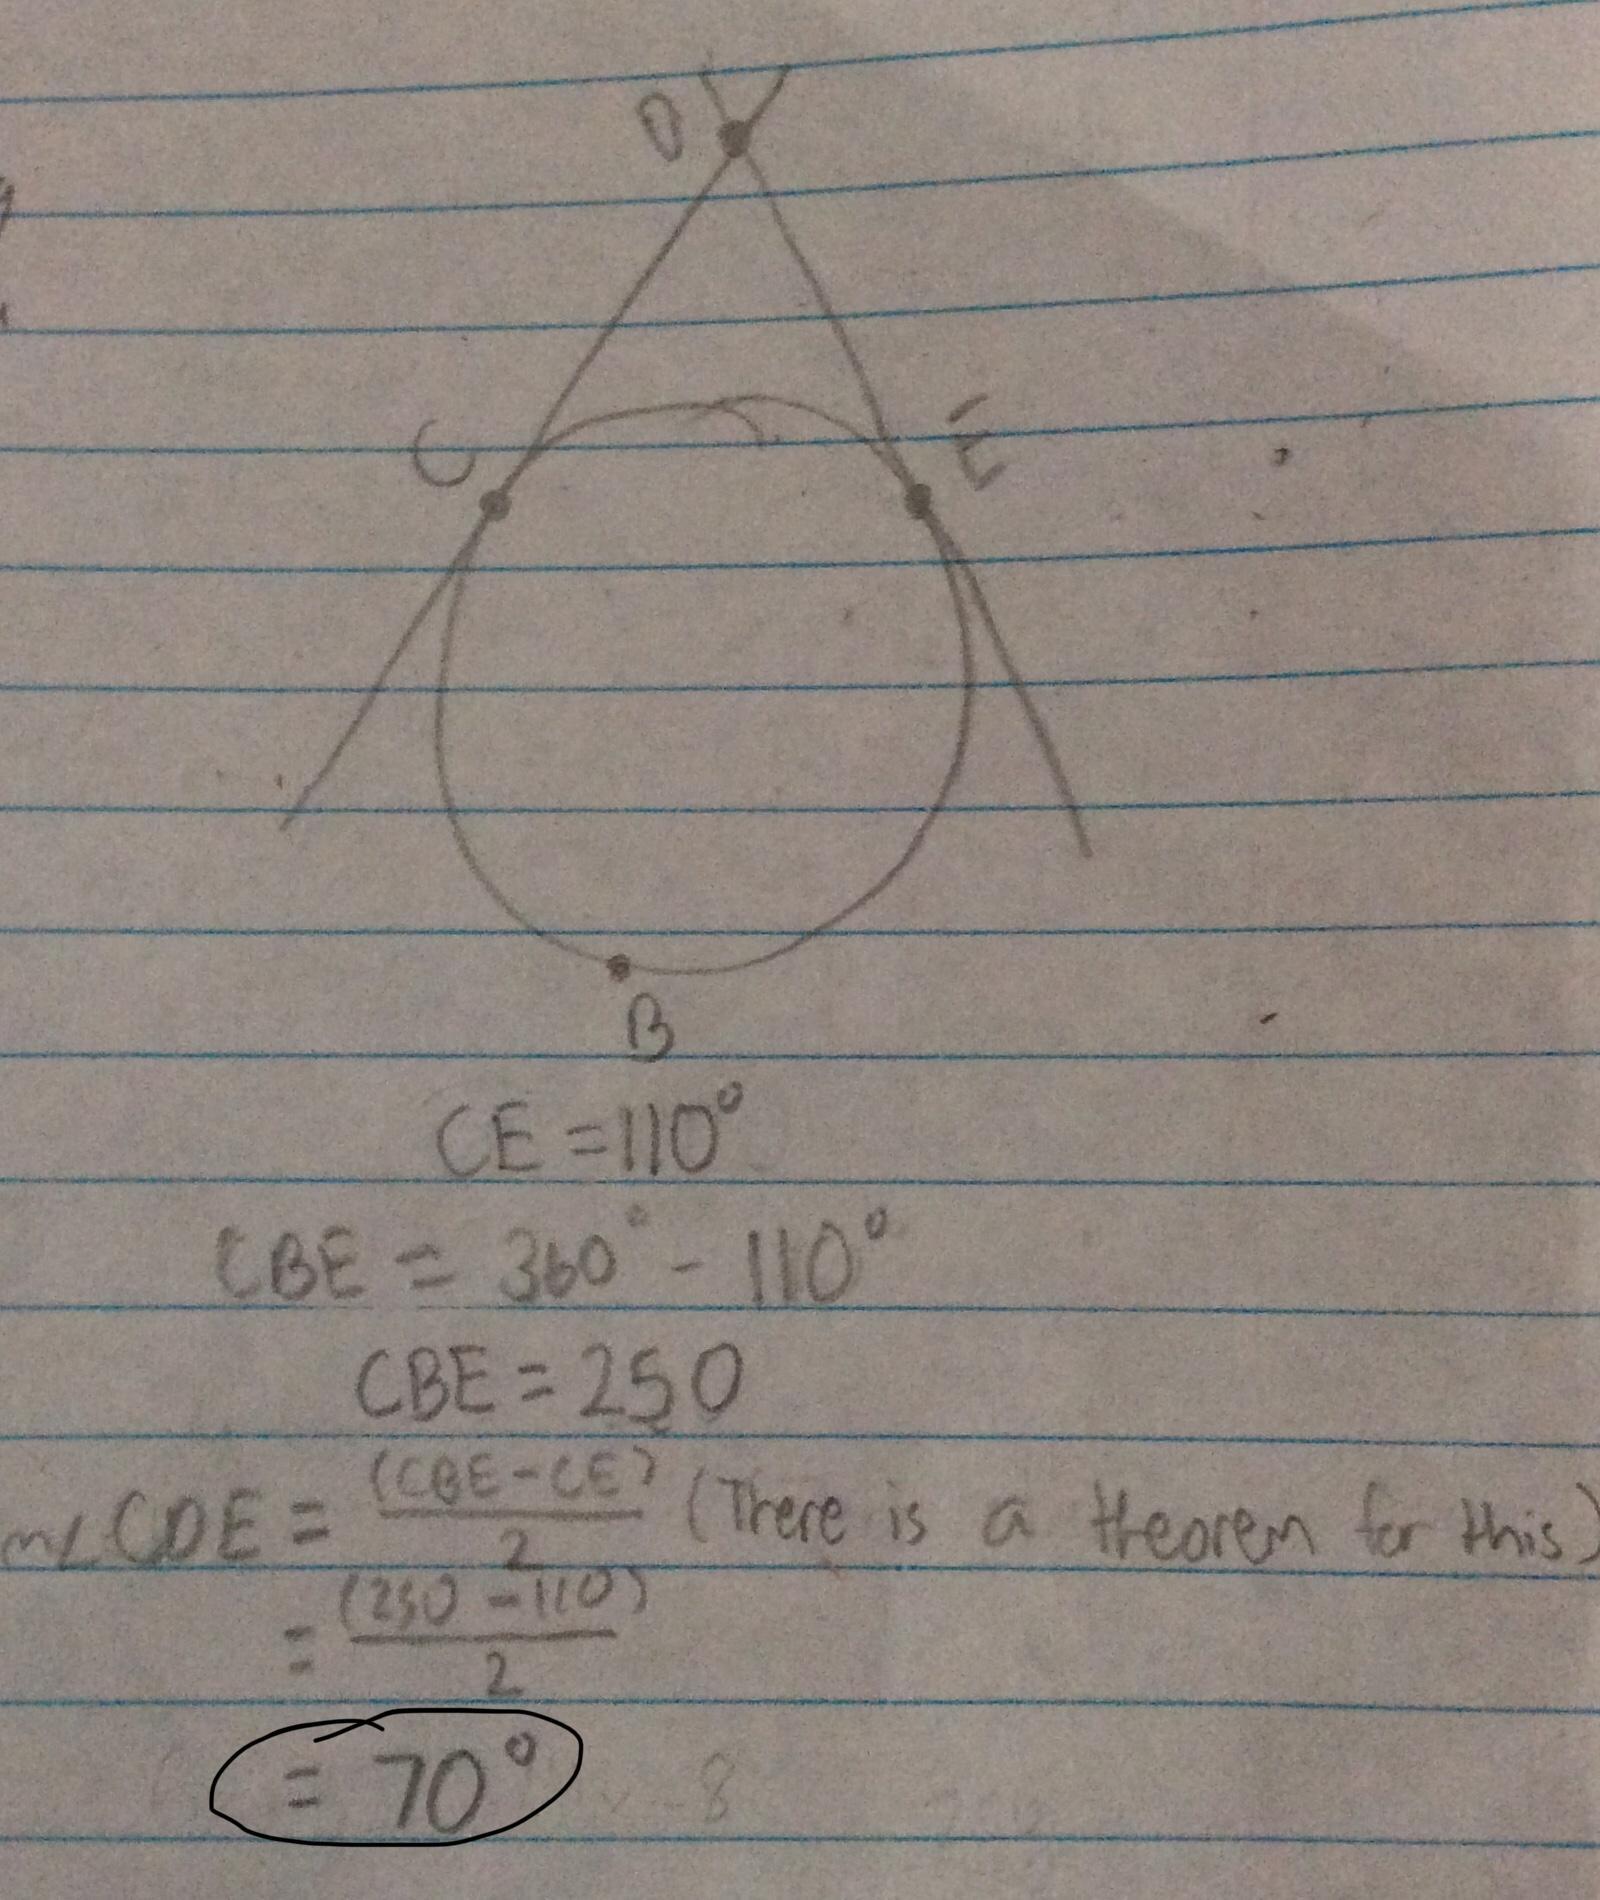 D
C E
B
CE = 110°
CBE = 360° - 110°
CBE = 250
m∠CDE = (CBE - CE) / 2 (There is a theorem for this)
= (250 - 110) / 2
= 70°